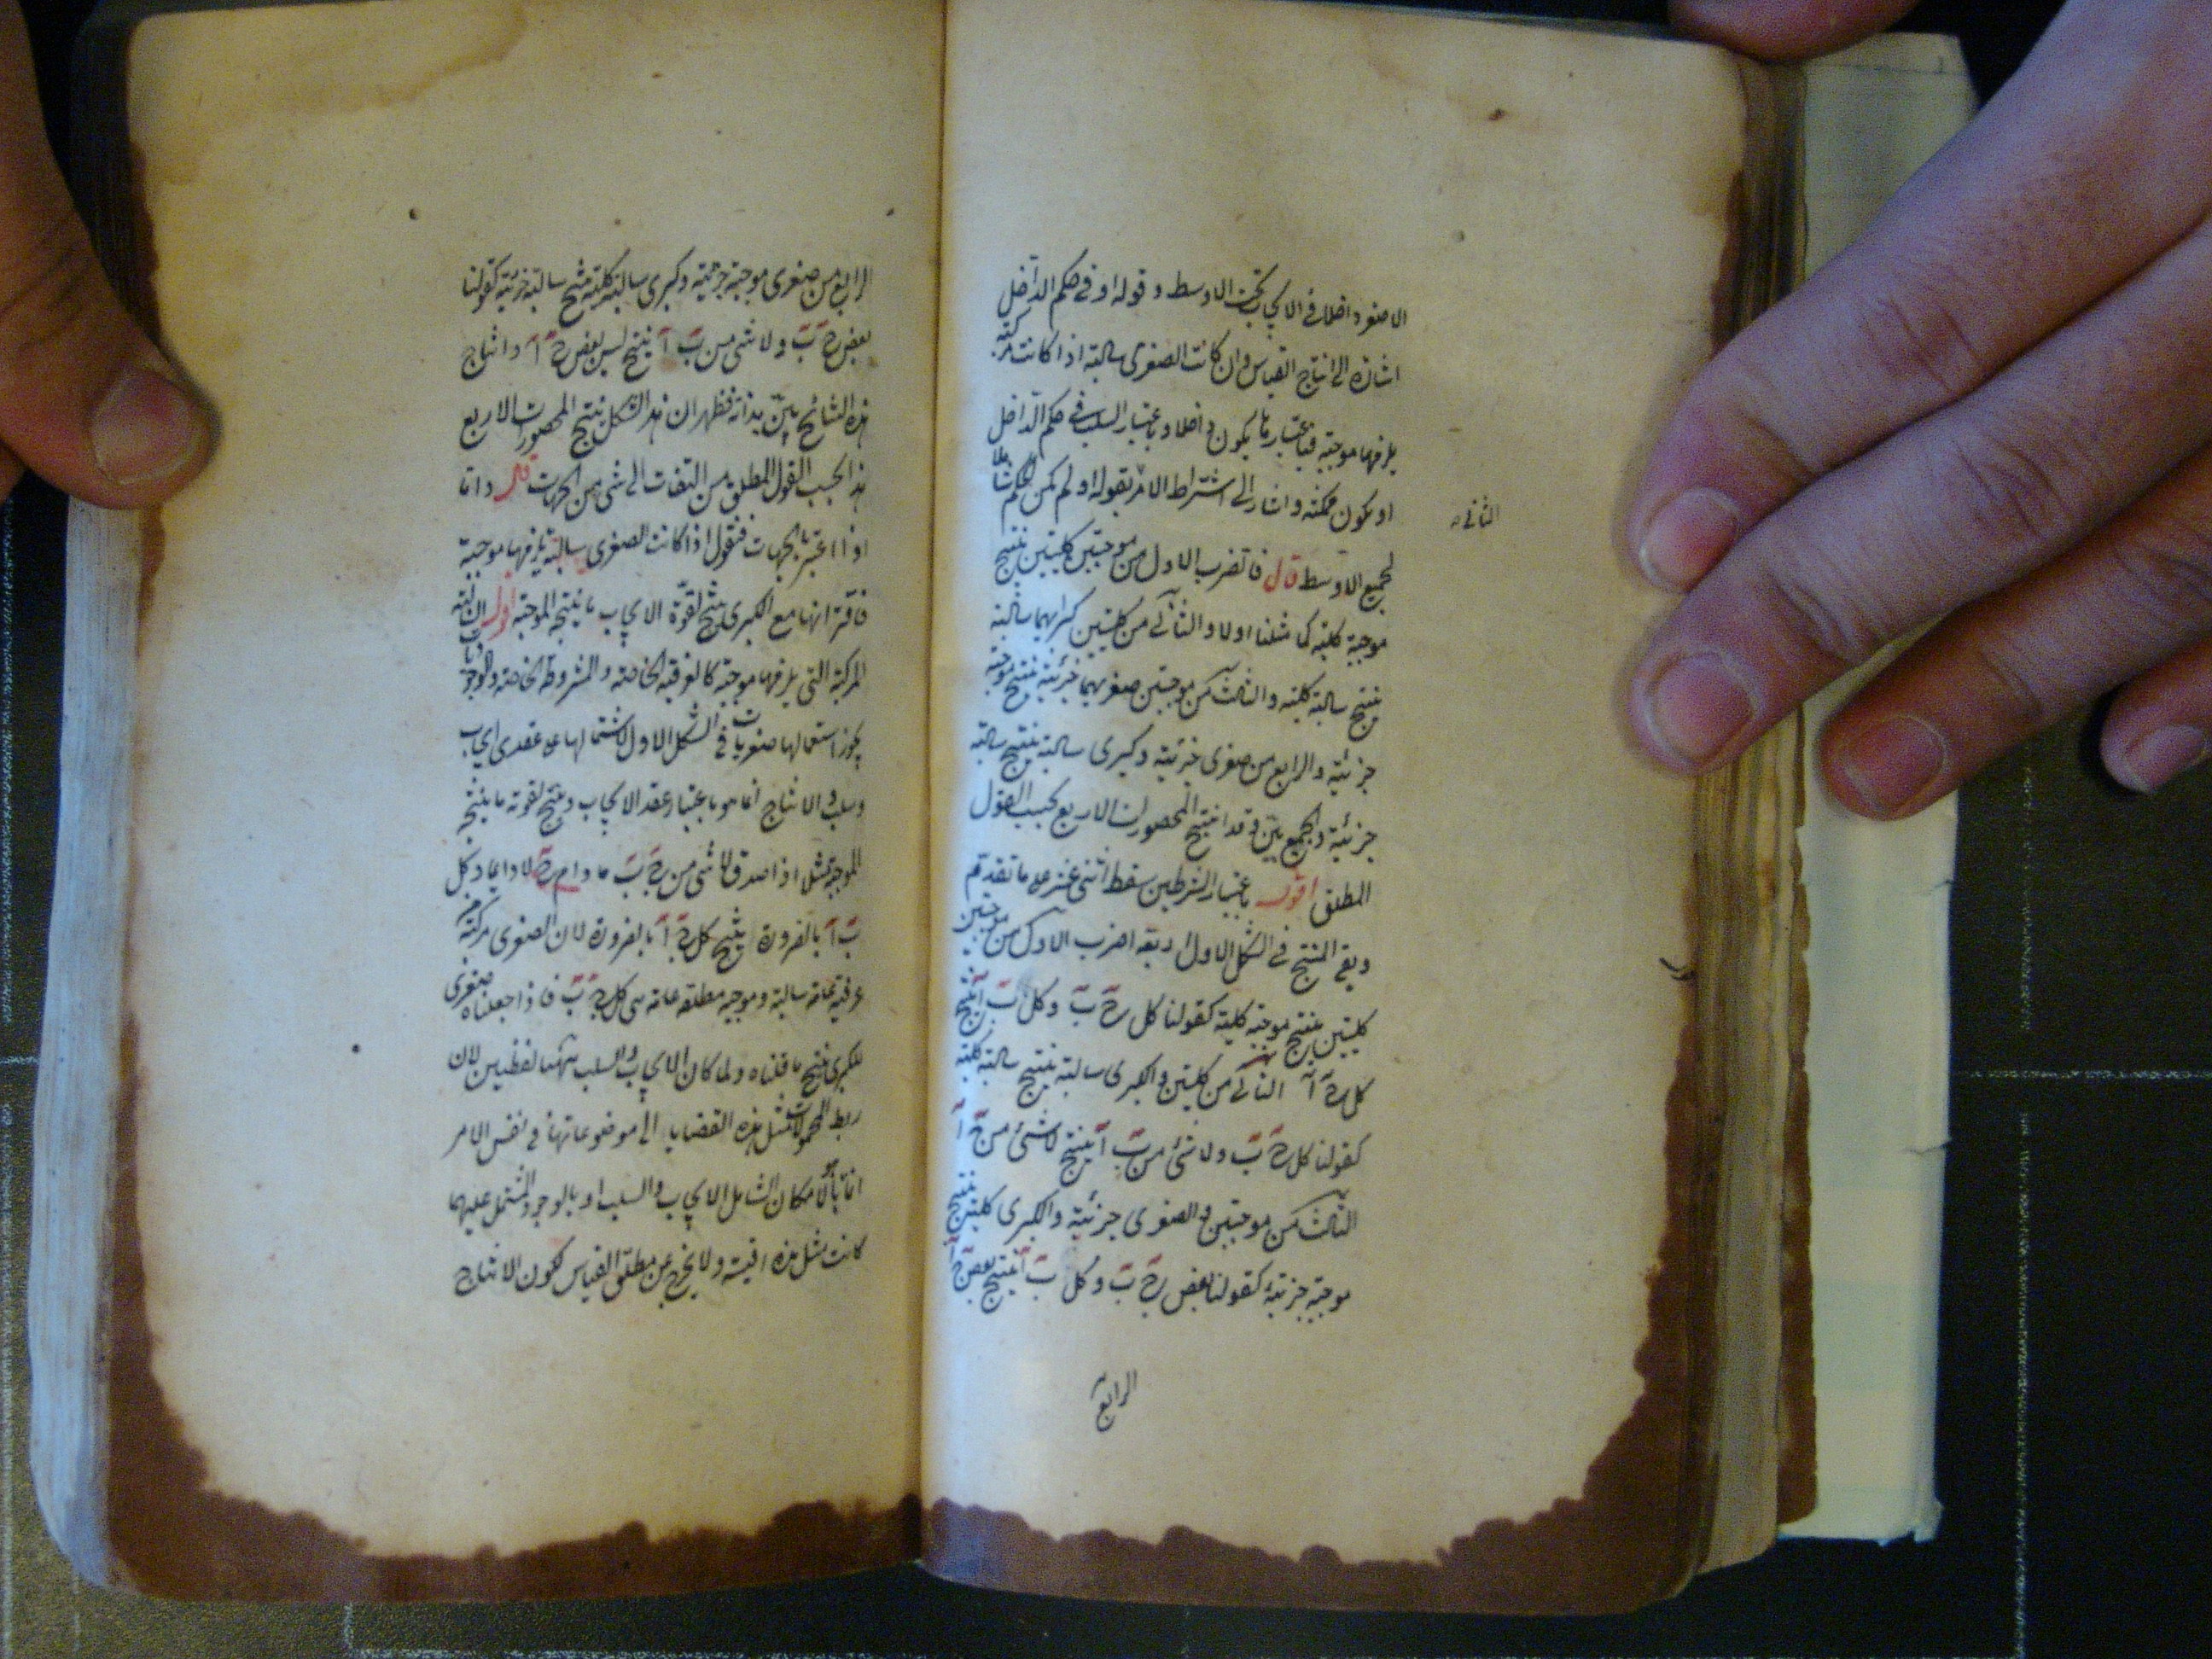 الاصغر داخلا في الايجاب تحت الاوسط وقوله او في حكم الداخل
اشارة الى انتاج القياس وان كانت الصغرى سالبة اذا كانت مركبة
يلزمها موجبة فباعتبارها يكون داخلا وباعتبار السلب في حكم الداخل
او يكون ممكنة واشار الى اشتراط الامر بقوله او لم يكن الحكم شاملا
الثاني
لجميع الاوسط قال فالضرب الاول من موجبتين كليتين ينتج
موجبة كلية كما مثلنا اولا والثاني من كليتين كبراهما سالبة
ينتج سالبة كلية والثالث من موجبتين صغريهما جزئية ينتج موجبة
جزئية والرابع من صغرى جزئية وكبرى سالبة ينتج سالبة
جزئية والجميع بين وقد انتج المحصورات الاربع بحسب القول
المطلق اقول باعتبار الشرطين سقط اثنى عشر على ما تقدم
وبقي المنتج في الشكل الاول اربعة اضرب الاول من موجبتين
كليتين ينتج موجبة كلية كقولنا كل ج ب وكل ب آ ينتج
كل ج آ الثاني من كليتين والكبرى سالبة ينتج سالبة كلية
كقولنا كل ج ب ولا شئ من ب آ ينتج لا شئ من ج آ
الثالث من موجبتين والصغرى جزئية والكبرى كلية ينتج
موجبة جزئية كقولنا بعض ج ب وكل ب آ ينتج بعض ج آ
الرابع
الرابع من صغرى موجبة جزئية وكبرى سالبة كلية ينتج سالبة جزئية كقولنا
بعض ج ب ولا شئ من ب آ ينتج ليس بعض ج آ وانتاج
هذه النتائج بين بذاته فظهر ان هذا الشكل ينتج المحصورات الاربع
هذا بحسب القول المطلق من التفات الى شئ من الجهات قال واما
اذا اعتبر بالجهات فنقول اذا كانت الصغرى سالبة يلزمها موجبة
فاقترانها مع الكبرى ينتج لقوة الايجاب ما ينتجه الموجبة اقول السالبة
المركبة التي يلزمها موجبة كالعرفية الخاصة والمشروطة الخاصة والوجوديات
يجوز استعمالها صغريات في الشكل الاول لاشتمالها على عقدى ايجاب
وسلب والانتاج انما هو باعتبار عقد الايجاب وينتج لقوته ما ينتجه
الموجبة مثلا اذا صدق لا شئ من ج ب ما دام ج لا دائما وكل
ب آ بالضرورة ينتج كل ج آ بالضرورة لان الصغرى مركبة من
عرفية عامة سالبة وموجبة مطلقة عامة هى كل ج ب فاذا جعلناه صغرى
للكبرى ينتج ما قلناه ولما كان الايجاب والسلب ههنا لفظيين لان
ربط المحمولات مثل هذه القضايا الى موضوعاتها في نفس الامر
اما بالامكان الشامل الايجاب والسلب او بالوجود المشتمل عليهما
كانت مثل هذه اقيسة ولا يخرج عن مطلق القياس لكون الانتاج